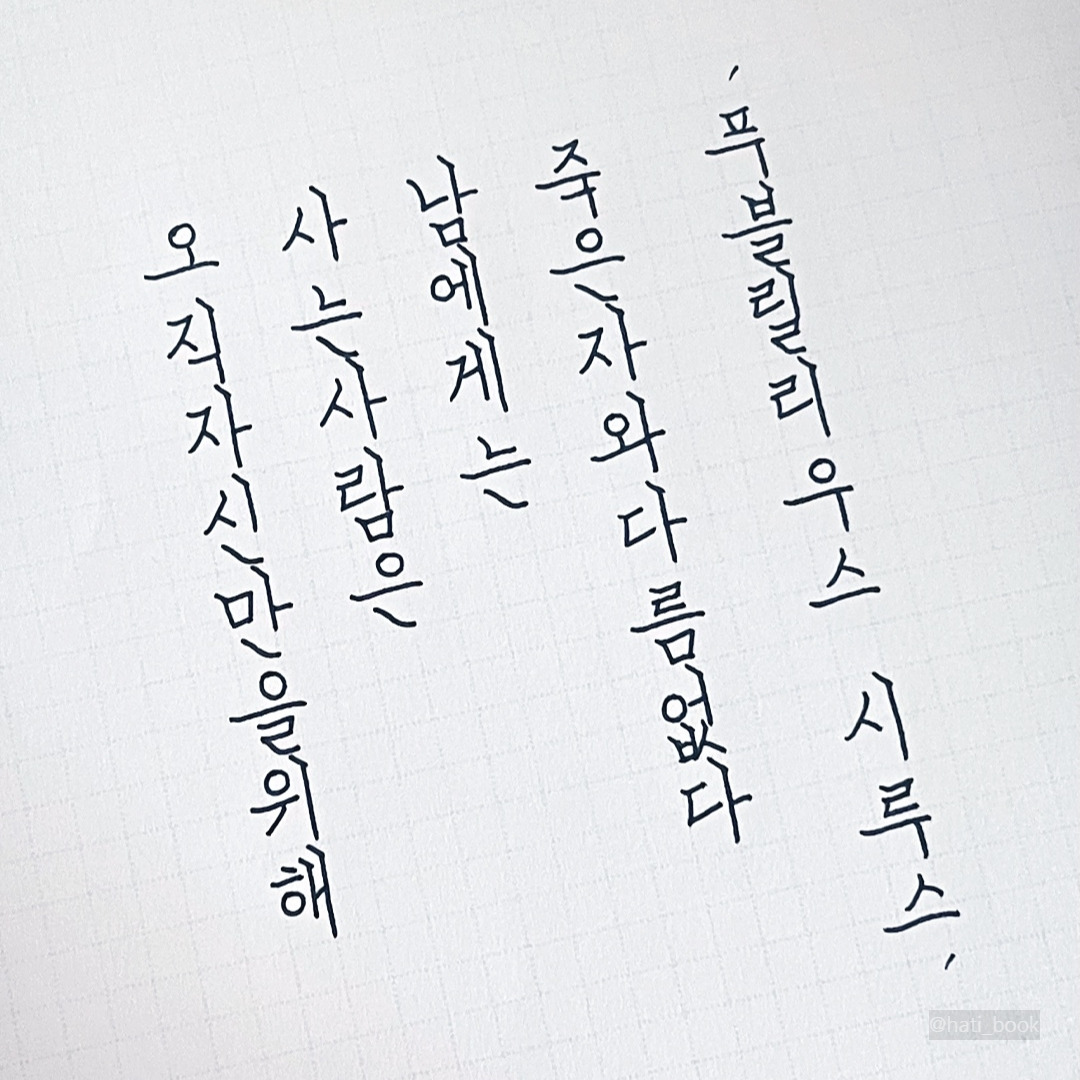 오직 자신만을 위해
사는 사람은
남에게는
죽은 자와 다름없다
'푸블릴리우스 시루스'
@hati_book